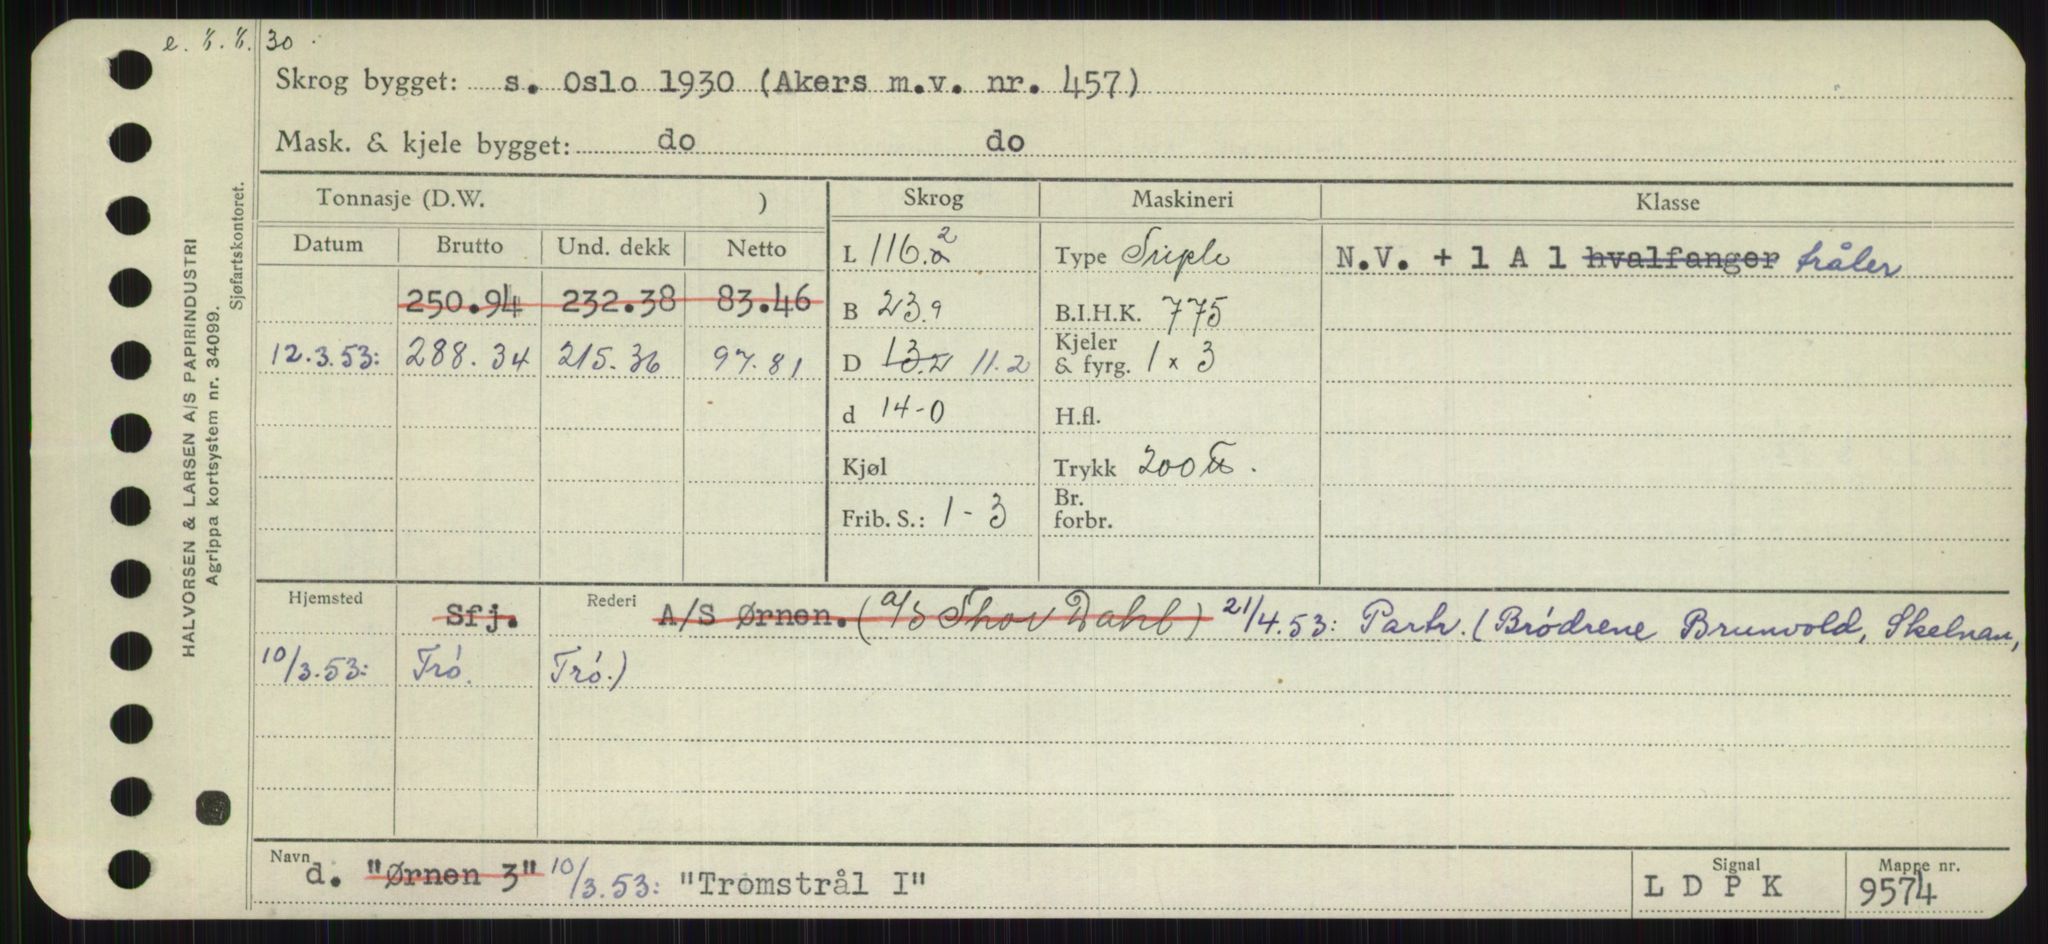 e. 8. 8. 30
Skrog bygget: s. Oslo 1930 (Akers m.v. nr. 457)
Mask. & kjele bygget: do do
Tonnasje (D.W. ) Skrog Maskineri Klasse
Datum Brutto Und. dekk Netto
L 116.2 Type Triple N.V. + 1 A 1 hvalfanger tråler
250.94 232.38 83.46 B 23.9 B.I.H.K. 775
12.3.53: 288.34 215.36 97.81 D 13.2 11.2 Kjeler & fyrg. 1 x 3
d 14-0 H.fl.
Kjøl Trykk 200 ℔.
Frib. S.: 1 - 3 Br. forbr.
Hjemsted Sfj. Rederi A/S Ørnen. (A/S Thor Dahl) 21/4.53: Partr. (Brødrene Brunvold, Skelnan,
10/3.53: Tró. Tró.)
Navn d. "Ørnen 3" 10/3.53: "Tromstrål I" Signal L D P K Mappe nr. 9574
HALVORSEN & LARSEN A/S PAPIRINDUSTRI
Agrippa kortsystem nr. 34099.
Sjøfartskontoret.